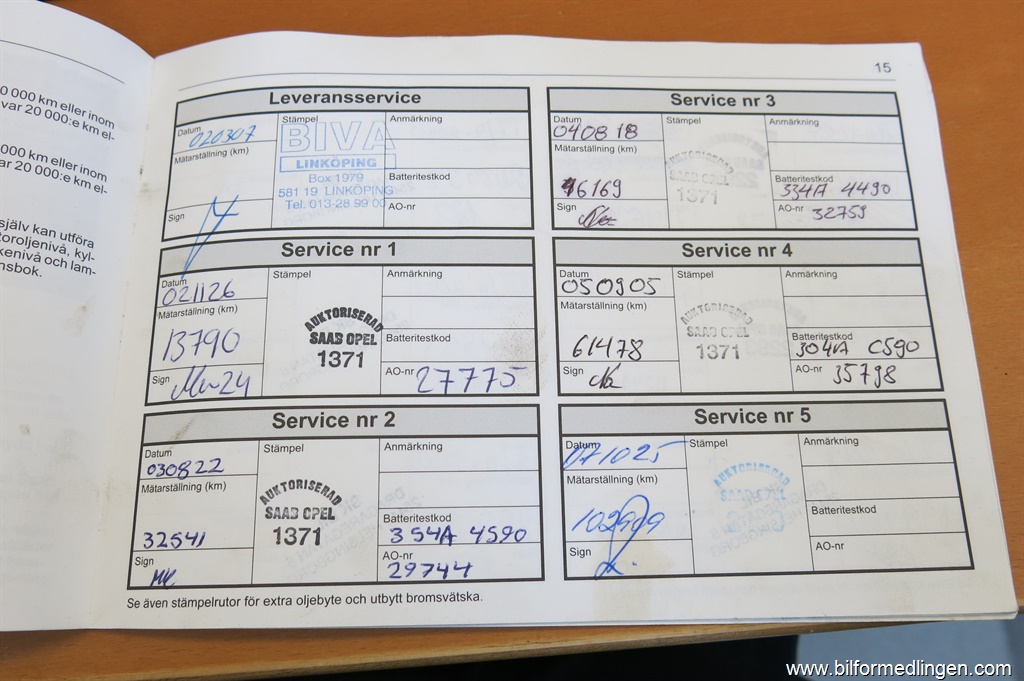 0 000 km eller inom
var 20 000:e km el-
000 km eller inom
r var 20 000:e km el-
själv kan utföra
toroljenivå, kyl-
kenivå och lam-
nsbok.
15
Leveransservice
Datum
020307
Stämpel
BIVA
LINKÖPING
Box 1979
581 19 LINKÖPING
Tel. 013-28 99 00
Anmärkning
Mätarställning (km)
Batteritestkod
Sign
AO-nr
Service nr 1
Datum
021126
Stämpel
AUKTORISERAD
SAAB OPEL
1371
Anmärkning
Mätarställning (km)
13790
Batteritestkod
Sign
AO-nr
27775
Service nr 2
Datum
030822
Stämpel
AUKTORISERAD
SAAB OPEL
1371
Anmärkning
Mätarställning (km)
32541
Batteritestkod
354A 4590
Sign
AO-nr
29744
Service nr 3
Datum
040818
Stämpel
AUKTORISERAD
SAAB OPEL
1371
Anmärkning
Mätarställning (km)
46169
Batteritestkod
334A 4490
Sign
AO-nr
32759
Service nr 4
Datum
050905
Stämpel
AUKTORISERAD
SAAB OPEL
1371
Anmärkning
Mätarställning (km)
61478
Batteritestkod
304A C590
Sign
AO-nr
35798
Service nr 5
Datum
071025
Stämpel
AUKTORISERAD
SAAB OPEL
Anmärkning
Mätarställning (km)
Batteritestkod
Sign
AO-nr
Se även stämpelrutor för extra oljebyte och utbytt bromsvätska.
www.bilformedlingen.com